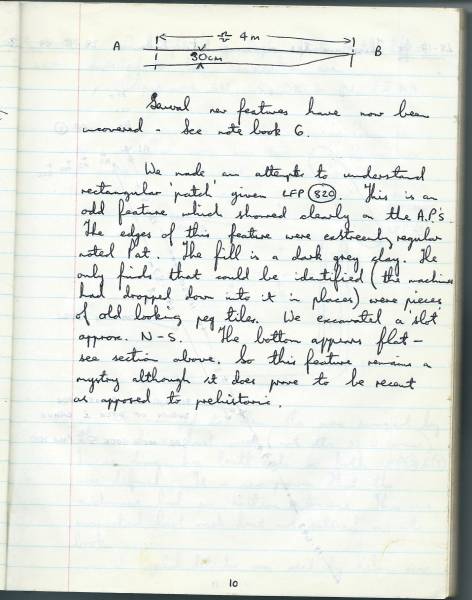 ≏ 4 m
A B
30cm
Several new features have now been
uncovered - See note book 6.
We made an attempt to understand
rectangular 'patch' given LFP 820. This is an
odd feature which showed clearly on the A.P.S.
The edges of this feature were extreemly regular
noted Pat. The fill is a dark grey clay. The
only finds that could be identified (the machine
had dropped down into it in places) were pieces
of old looking peg tiles. We excavated a slot
approx. N-S. The bottom appears flat -
see section above. So this feature remains a
mystery although it does prove to be recent
as opposed to prehistoric.
10